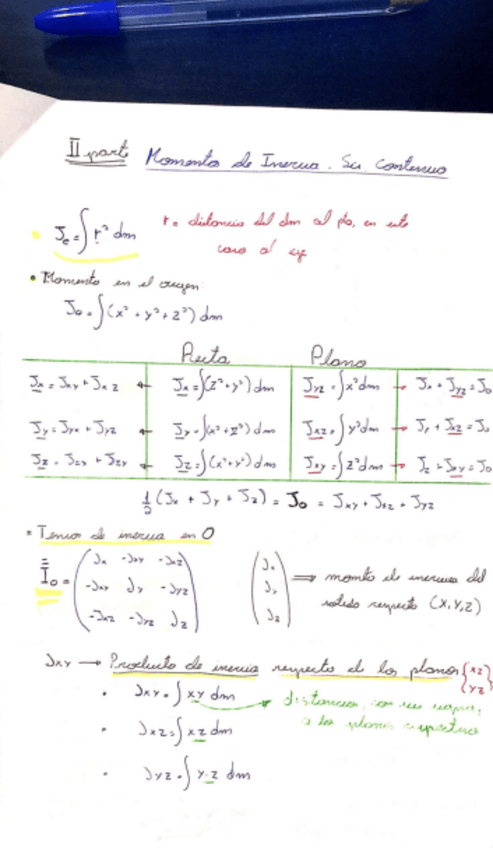 II parte Momentos de Inercia. Sci. Continuo
Je = ∫ r² dm r = distancia del dm al pto, en este
caso al eje
• Momento en el origen:
J₀ = ∫(x² + y² + z²) dm
Recta Plano
Jx = Jxy + Jxz ← Jx = ∫(z² + y²) dm Jyz = ∫x² dm → Jx + Jyz = J₀
Jy = Jyx + Jyz ← Jy = ∫(x² + z²) dm Jxz = ∫y² dm → Jy + Jxz = J₀
Jz = Jzx + Jzy ← Jz = ∫(x² + y²) dm Jxy = ∫z² dm → Jz + Jxy = J₀
½ (Jx + Jy + Jz) = J₀ = Jxy + Jxz + Jyz
• Tensor de inercia en O
I₀ = ( Jx -Jxy -Jxz ( Jx
-Jxy Jy -Jyz Jy ⇒ momto de inercia del
-Jxz -Jyz Jz ) Jz ) solido respecto (x,y,z)
Jxy → Producto de inercia respecto a los planos { xz
yz }
• Jxy = ∫ xy dm
distancias, con sus signos,
• Jxz = ∫ xz dm a los planos respectivos
• Jyz = ∫ y·z dm